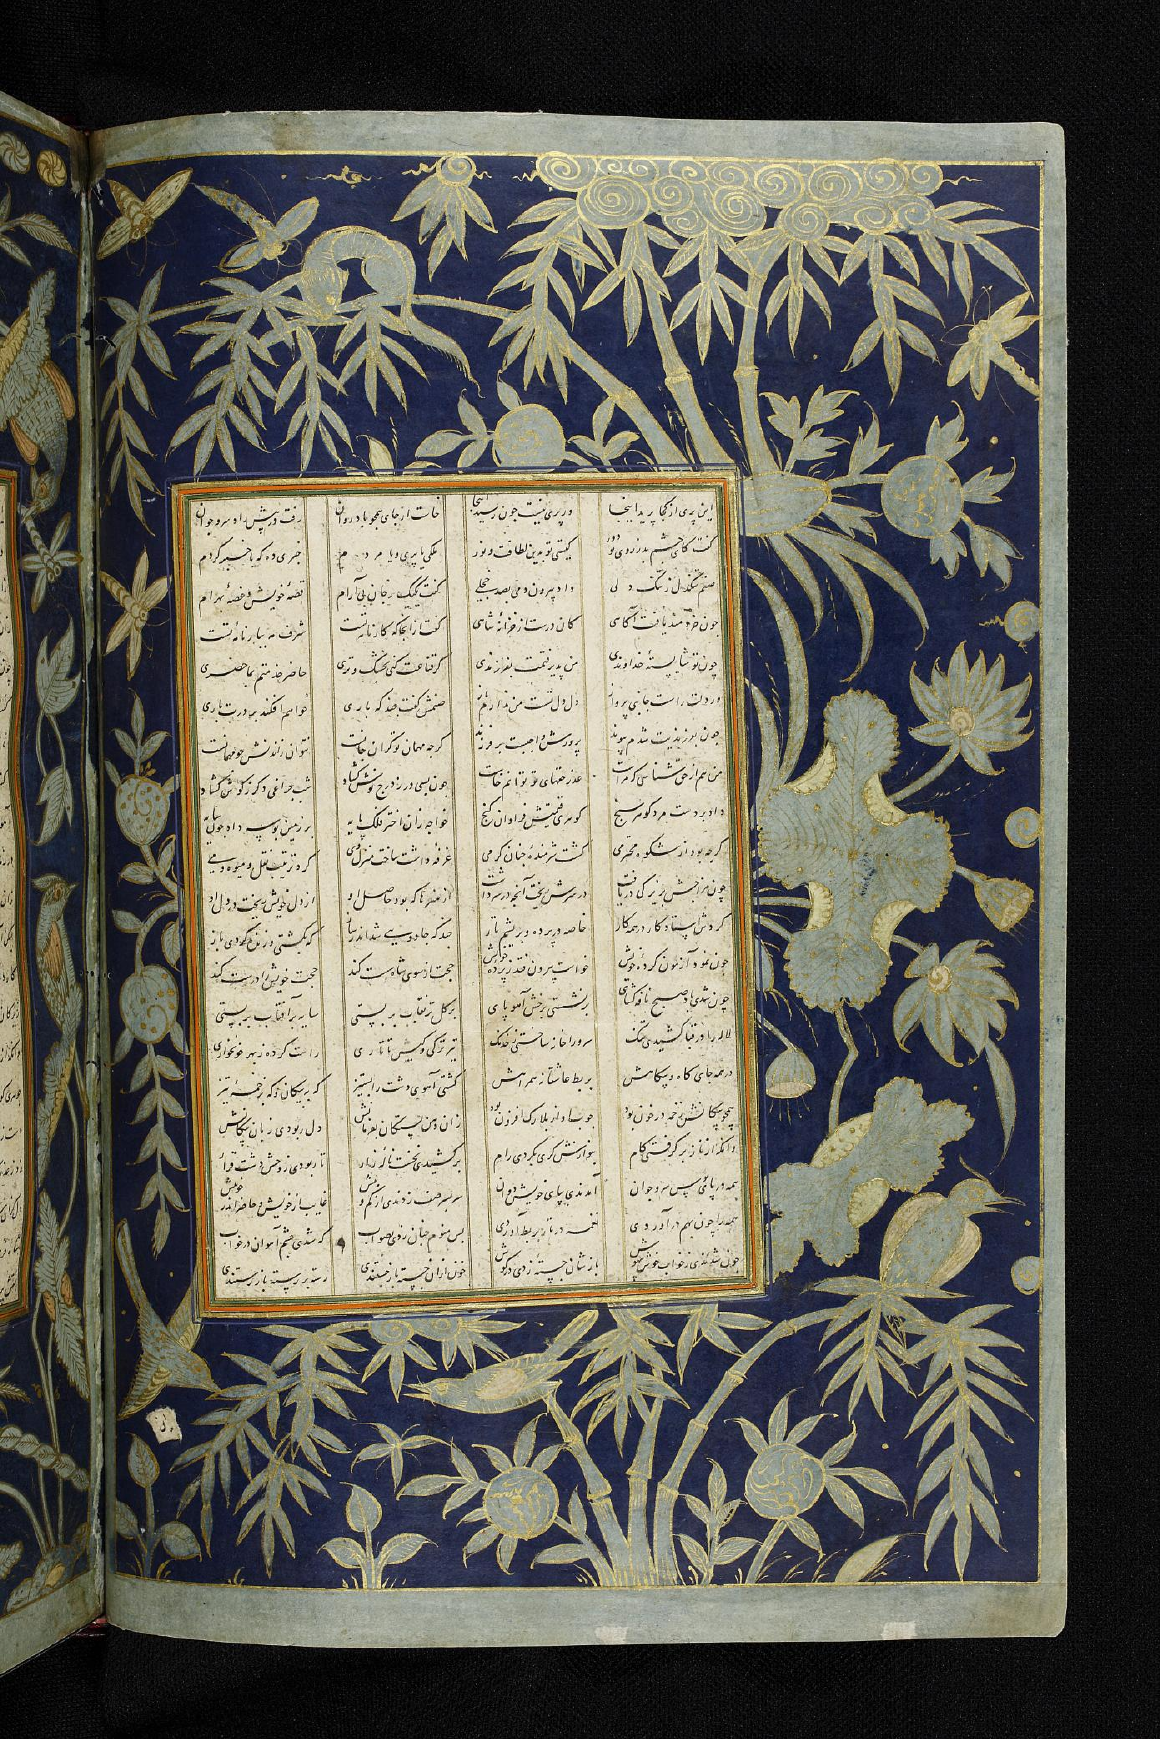 این پری از کجا پرید اینجا ور پری نیست چون رسید اینجا خاست از جای همچو باد روان رفت در پیش سرو جوان
گفت کای چشم بد ز روی تو دور کیستی تو بدین لطافت و نور ملکی یا پری و یا مردم خبری ده که باخبر گردم
صنم تنگدل ز تنگ دلی داد بیرون دمی بصد خجلی گفت کینک ز جان بی آرام قصهٔ خویش و غصهٔ بهرام
چون خردمند یافت آگاهی کان در است از خزانهٔ شاهی گفت از انجا که شرف ما
چون تو شایستهٔ خداوندی من پذیرفتمت بفرزندی گر قناعت کنی بخشک و تری حاضر خدمتم بماحضری
ور دلت راست جانبی پرواز دل دل تست من ندارم باز صنمش گفت چند که یاری خواهم افکند بر درت باری
چون بفرزندیت شدم پیوند پرورش واجبست بر فرزند گرچه مهمان تو گران جانست نتوان راندنش چو مهمانست
من هم از حق شناسی کرمت عذر حقهای تو توانم خاست چون بسی در ز درج نوش گشاد شب چراغی دگر ز گوش گشاد
داد بر دست مرد گوهر سنج گوهری قیمتش فراوان گنج خواجه زان اختر فلک پایه بر زمین بوسه داد چون سایه
گرچه بود از شکوه گشت شرمندهٔ چنان کرمی غرفه داشت ساخت منزل وی کرد ترتیب نقل و میوه و می
چون هنرهاش زیرکی دریافت در سرش ریخت آنچه در سر داشت از هنرها که بود حاصل او از دل خویش ریخت در دل او
کردش استاد کار در همه کار خاصه در پرده بریشم تار چند که جادویی شد اندر ساز که بکشتی و زنده کردی باز
چون نمود آزمون کرده خویش خواست بیرون فتد ز پرده خویش حجت از سوی شاه سست کند حجت خویش را درست کند
چون شدی صبح نافه گشای بر نشستی برخش آهو پای بر گل تر نقاب بر بستی سایه بر آفتاب بر بستی
لاله را در قبا کشیدی تنگ سرو را ساختی خدنگ تیر ترکی و کیش تاتاری راست کرده ز بهر خونخواری
در همه جای گاه و بیگاهش بربط عاشقانه همراهش گشتی آهوی دشت را بستیز که به پیکان و گه بزخمهٔ تیز
همچو پیکانش زخمه در خون بود از بلارک افزون بود زان خستگان بفرمانش دل ربودی زبان پیکانش
وانگه از ناز برگرفتی گام بنوازش گری بکردی رام برکشیدی نخست نالهٔ زار تا ربودی ز وحش دشت قرار
همه در پای دوان آمدندی بپای خویش دوان سر بسر صف زدندی از کم و بیش غایب از خویش و حاضر اندر خویش
همه را چون بهم درآوردی نغمه در تار بربط آوردی بس منوم چنان زدی بصواب که شدی چشم آهوان در خواب
چون شدندی ز خواب خوش بیهوش باز شان زدی در گوش باز جستندی رسته بر رسته باز رستندی